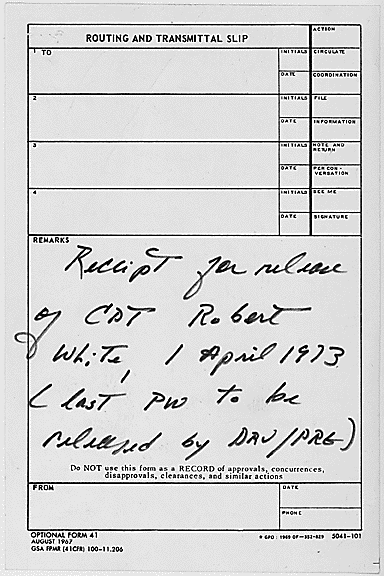 ROUTING AND TRANSMITTAL SLIP
ACTION
1 TO
INITIALS
CIRCULATE
DATE
COORDINATION
2
INITIALS
FILE
DATE
INFORMATION
3
INITIALS
NOTE AND
RETURN
DATE
PER CON -
VERSATION
4
INITIALS
SEE ME
DATE
SIGNATURE
REMARKS
Receipt for release
of CPT Robert
White, 1 April 1973
(last PW to be
released by DRV/PRG)
Do NOT use this form as a RECORD of approvals, concurrences,
disapprovals, clearances, and similar actions
FROM
DATE
PHONE
OPTIONAL FORM 41
AUGUST 1967
GSA FPMR (41CFR) 100-11.206
GPO : 1969 OF—352-829
5041-101